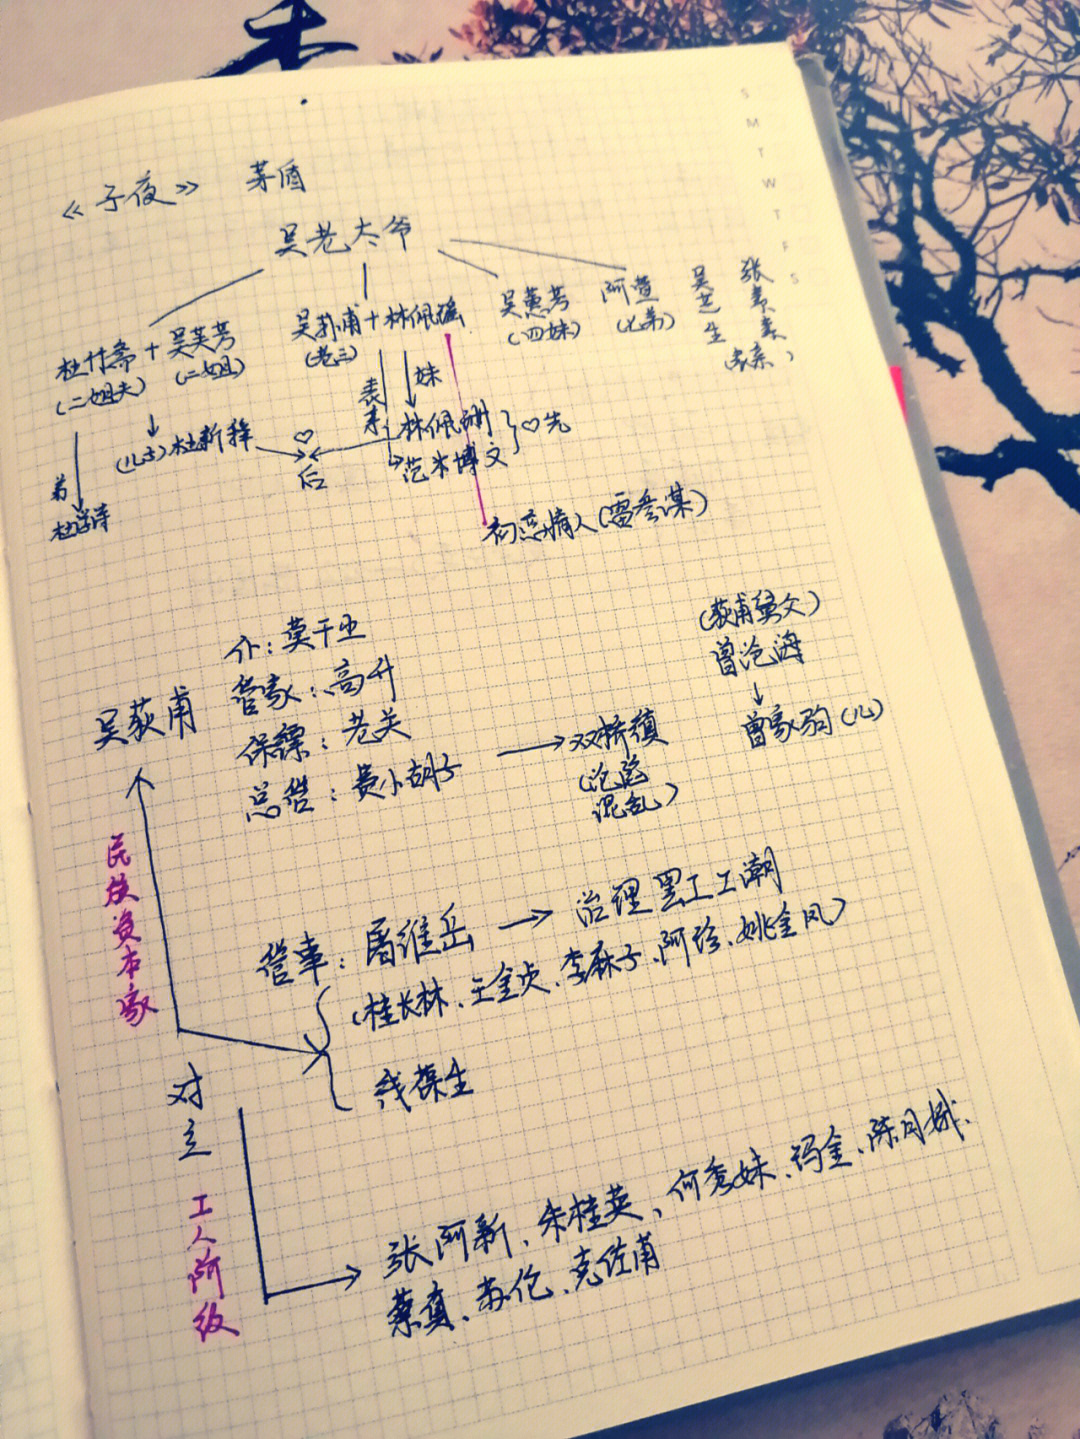 禾
S
M
T
W
T
F
S
《子夜》 茅盾
吴老太爷
杜竹斋 + 吴芙芳 吴荪甫 + 林佩瑶 吴蕙芳 阿萱 吴芝生 张素素
(二姐夫) (二姐) (老三) (四妹) (七弟) (表亲)
表亲
妹
弟 (儿子) 杜新箨 ♡ 后 林佩珊 ♡先
杜学诗 范木博文
初恋情人(雷参谋)
仆: 莫干丞
吴荻甫 管家: 高升
保镖: 老关
总管: 费小胡子 → 双桥镇
(沦陷
混乱)
(荻甫舅父)
曾沧海
曾家驹(儿)
民族资本家
管事: 屠维岳 → 治理罢工工潮
(桂长林、王金贞、李麻子、阿珍、姚金凤)
钱葆生
对立
工人阶级
张阿新、朱桂英、何秀妹、玛金、陈月娥、
蔡真、苏伦、克佐甫